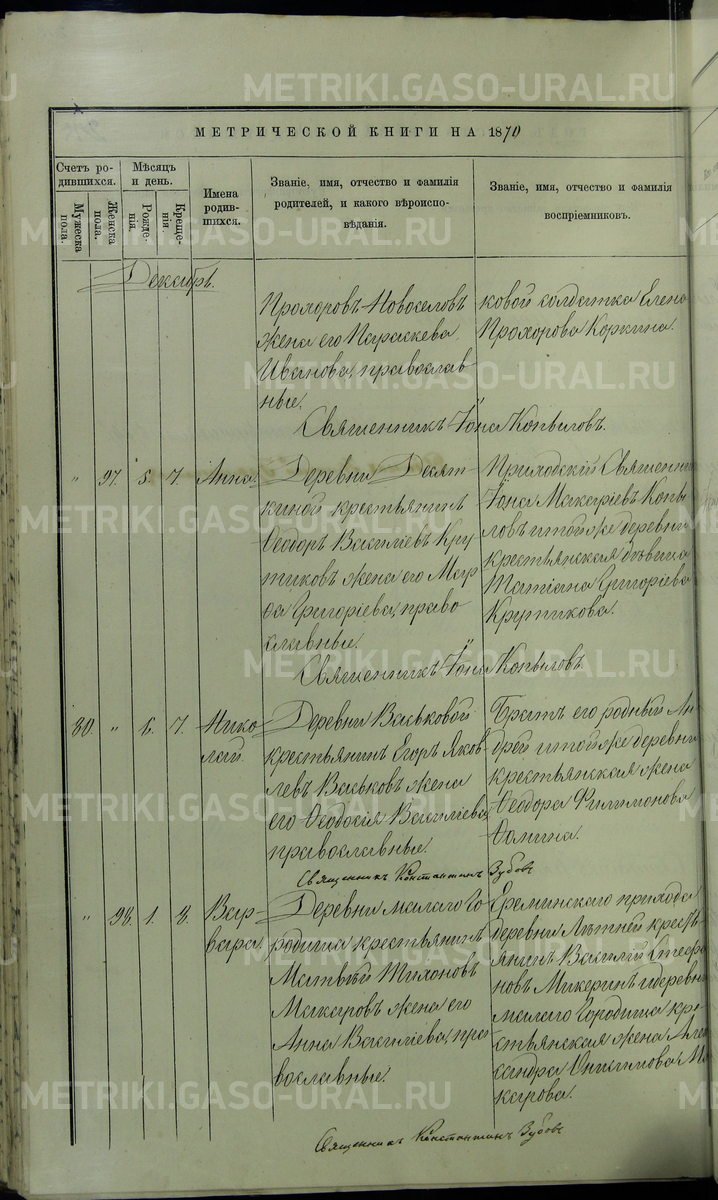 METRIKI.GASO-URAL.RU
МЕТРИЧЕСКОЙ КНИГИ НА 1870
Счетъ ро-
дившихся.
Мужеска пола.
Женска пола.
Мѣсяцъ
и день.
Рожде-
нія.
Креще-
нія.
Имена
родив-
шихся.
Званіе, имя, отчество и фамилія
родителей, и какого вѣроиспо-
вѣданія.
Званіе, имя, отчество и фамилія
воспріемниковъ.
Декабрь.
Прохоровъ Новоселовъ
жена его Параскева
Иванова, православ-
ные.
ковой солдатка Елена
Прохорова Коркина.
Священникъ Іона Копыловъ.
" 97. 5. 7. Анна.
Деревни Десят-
киной крестьянинъ
Ѳеодоръ Василіевъ Кру-
тиковъ жена его Мар-
ѳа Григоріева, право
славные.
Приходскій Священни
Іона Макаріевъ Копы
ловъ и тойже деревни
крестьянская дѣвица
Татіана Григоріева
Крутикова.
Священникъ Іона Копыловъ.
80. " 6. 7. Нико-
лай.
Деревни Васьковой
крестьянинъ Егоръ Яков-
левъ Васьковъ жена
его Ѳеодосія Василіева,
православные.
Братъ его родный Ан
дрей и тойже деревни
крестьянская жена
Ѳеодора Филимонова
Ѳомина.
Священникъ Константинъ Зубовъ
" 98. 1. 8. Вар-
вара.
Деревни малаго Го-
родища крестьянинъ
Матвѣй Тихоновъ
Макаровъ жена его
Анна Василіева, пра
вославные.
Ереминскаго прихода
деревни Лѣтней кресть
янинъ Василій Стефа
новъ Микеринъ и деревни
малаго Городища кре
стьянская жена Алек
сандра Онисимова Ма
карова.
Священникъ Константинъ Зубовъ